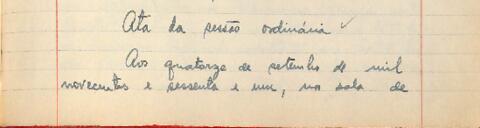 Ata da sessão ordinária
Aos quatorze de setembro de mil
novecentos e sessenta e um, na sala de